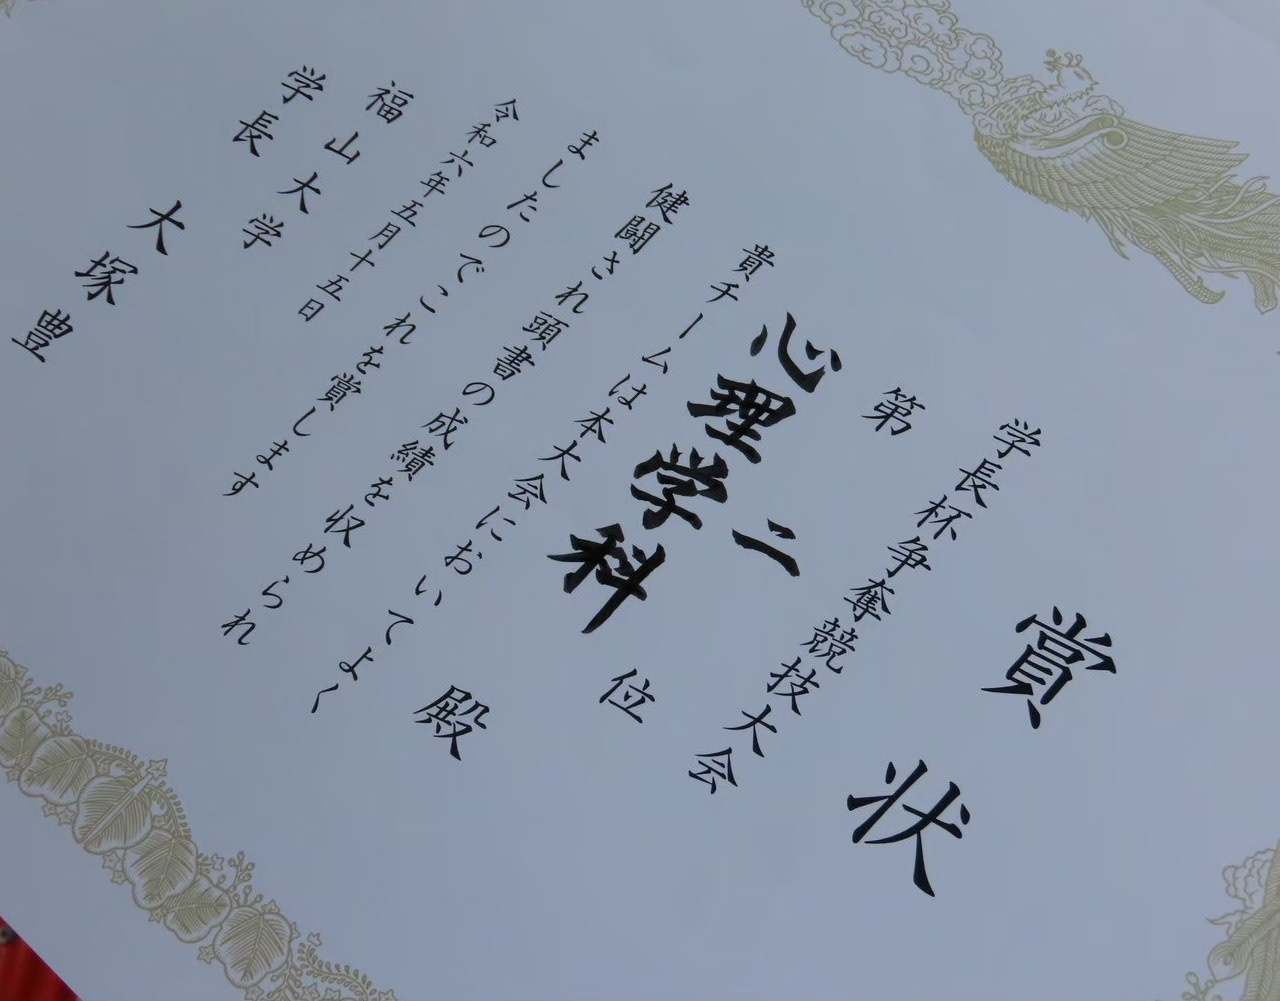 賞状
学長杯争奪競技大会
第二位
心理学科殿
貴チームは本大会においてよく
健闘され頭書の成績を収められ
ましたのでこれを賞します
令和六年五月十五日
福山大学
学長 大塚豊